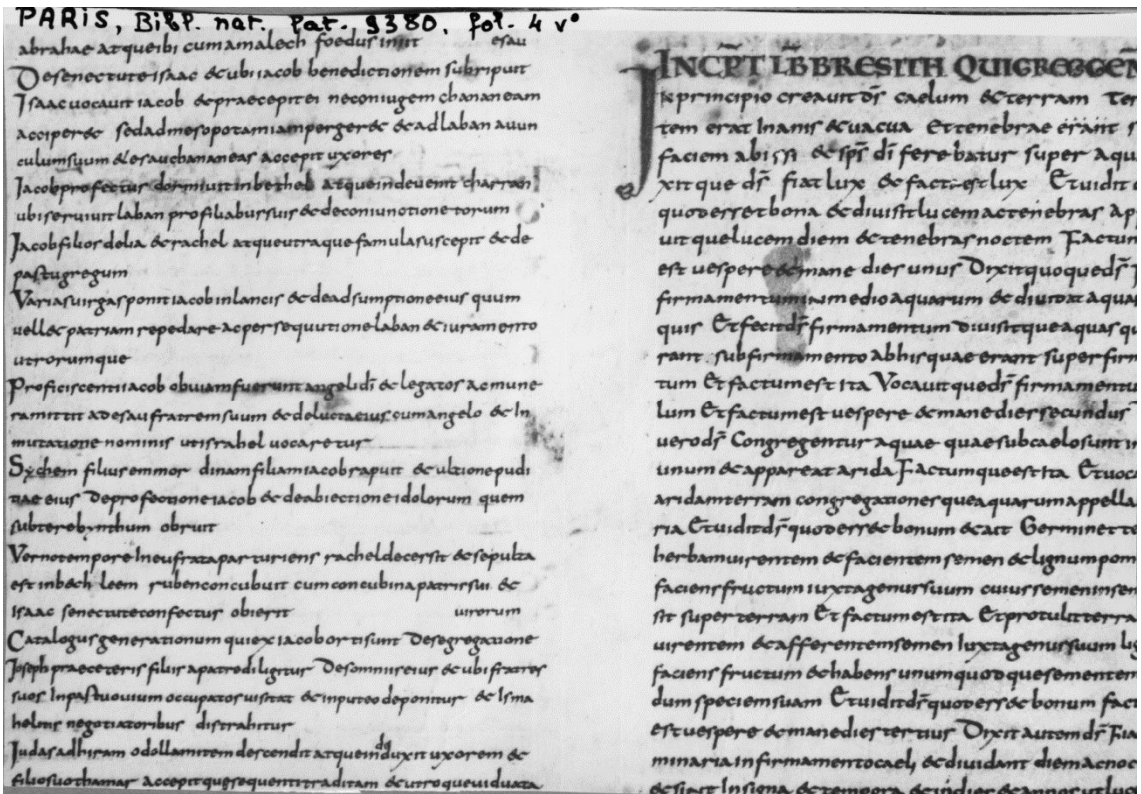 PARIS, Bibl. nat. Lat. 9380, fol. 4 v°
abrahae atque ibi cum amalech foedus iniit esau
De senectute isaac & ubi iacob benedictionem subripuit
Isaac vocauit iacob & praecepit ei ne coniugem chananeam
acciper& sed ad mesopotamiam perger& & ad laban auun
culum suum & esau chananeas accepit uxores
Iacob profectus dormiuit in bethel atque inde uenit charran
ubi seruiuit laban pro filiabus suis & de coniunctione eorum
Iacob filios de lia & rachel atque utraque famula suscepit & de
pastu gregum
Varias uirgas ponit iacob in lancis & de adsumptione eius quum
uell& patriam repedare ac persequutione laban & iuramento
utrorumque
Proficiscenti iacob obuiam fuerunt angeli di & legatos ac mune
ra mittit ad esau fratrem suum & de lucta eius cum angelo & In
mutatione nominis ut israhel uocaretur
Sychem filius emmor dinam filiam iacob rapuit & ultione pudi
titae eius De profectione iacob & de abiectione idolorum quem
subter ebynthum obruit
Verno tempore In eufrata parturiens rachel decessit & sepulta
est in bethleem ruben concubuit cum concubina patris sui &
isaac senectute confectus obierit uirorum
Catalogus generationum qui ex iacob orti sunt De segregatione
Ioseph prae ceteris filiis a patre diligitur De somniis eius & ubi fratres
suos In pastu ouium occupatos uisitat & in puteo deponitur & Isma
helitis negotiatoribus distrahitur
Iudas ad hiram odollamitem descendit atque inde duxit uxorem &
filio suo thamar accepit que sequenti traditam & utroque uiduata
INCPT LB BRESITH QUI GRECE GEN
IN principio creauit ds caelum & terram Ter
tem erat Inanis & uacua Et tenebrae erant s
faciem abissi & sps di ferebatur super aqu
xitque ds fiat lux & facta est lux Et uidit d
quod esset bona & diuisit lucem ac tenebras Ap
uitque lucem diem & tenebras noctem Factum
est uespere & mane dies unus Dixit quoque ds F
firmamentum in medio aquarum & diuidat aqua
quis Et fecit ds firmamentum Diuisitque aquas qu
rant sub firmamento ab his quae erant super firm
tum Et factum est Ita Vocauitque ds firmamentu
lum Et factum est uespere & mane dies secundus
uero ds Congregentur aquae quae sub caelo sunt in
unum & appareat arida Factumque est Ita Et uoc
aridam terram congregationesque aquarum appella
ria Et uidit ds quod ess& bonum & ait Germinet te
herbam uirentem & facientem semen & lignum pom
faciens fructum iuxta genus suum cuius semen in sem
sit super terram Et factum est Ita Et protulit terra
uirentem & afferentem semen Iuxta genus suum lig
faciens fructum & habens unumquodque sementem
dum speciem suam Et uidit ds quod ess& bonum Fact
est uespere & mane dies tertius Dixit autem ds Fia
minaria in firmamento caeli & diuidant diem ac noc
& sint In signa & tempora & in dies & annos ut luce